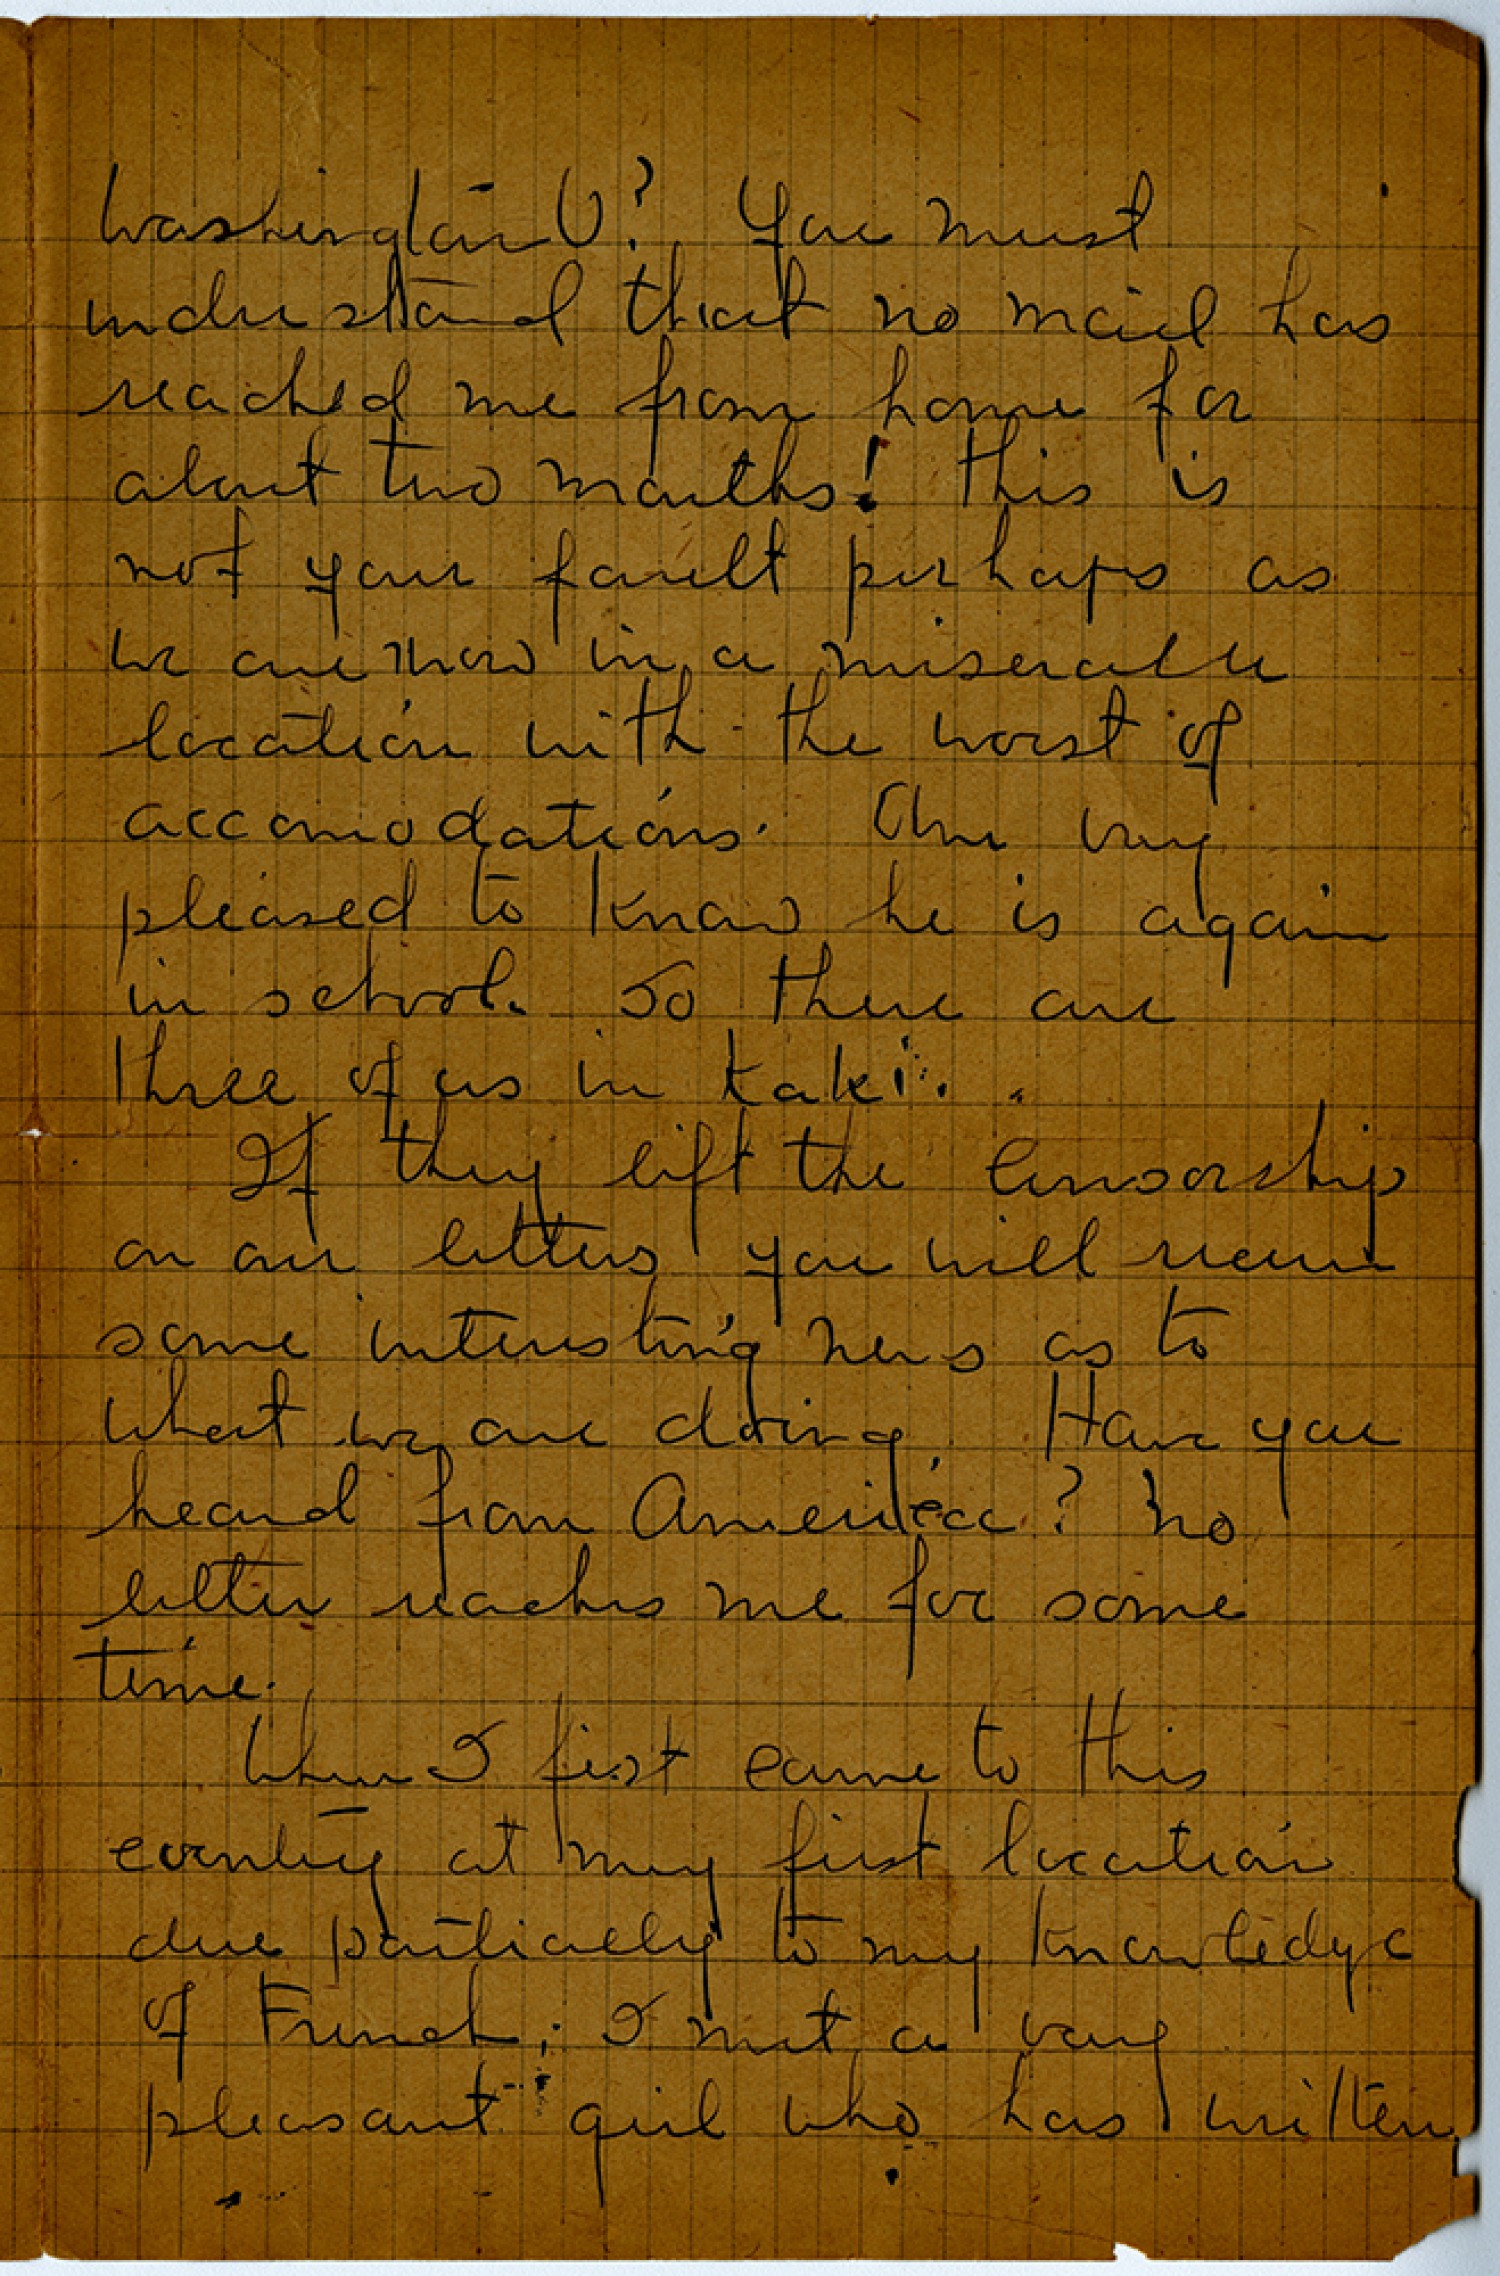 Washington U? You must
understand that no mail has
reached me from home for
about two months! this is
not your fault perhaps as
we are now in a miserable
location with the worst of
accomodations. Am very
pleased to know he is again
in school. So there are
three of us in kaki.
If they lift the censorship
on our letters you will receive
some interesting news as to
what we are doing. Have you
heard from America? No
letter reaches me for some
time.
When I first came to this
country at my first location
due partially to my knowledge
of French, I met a very
pleasant girl who has written